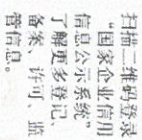 扫描二维码登录
“国家企业信用
信息公示系统”
了解更多登记、
备案、许可、监
管信息。